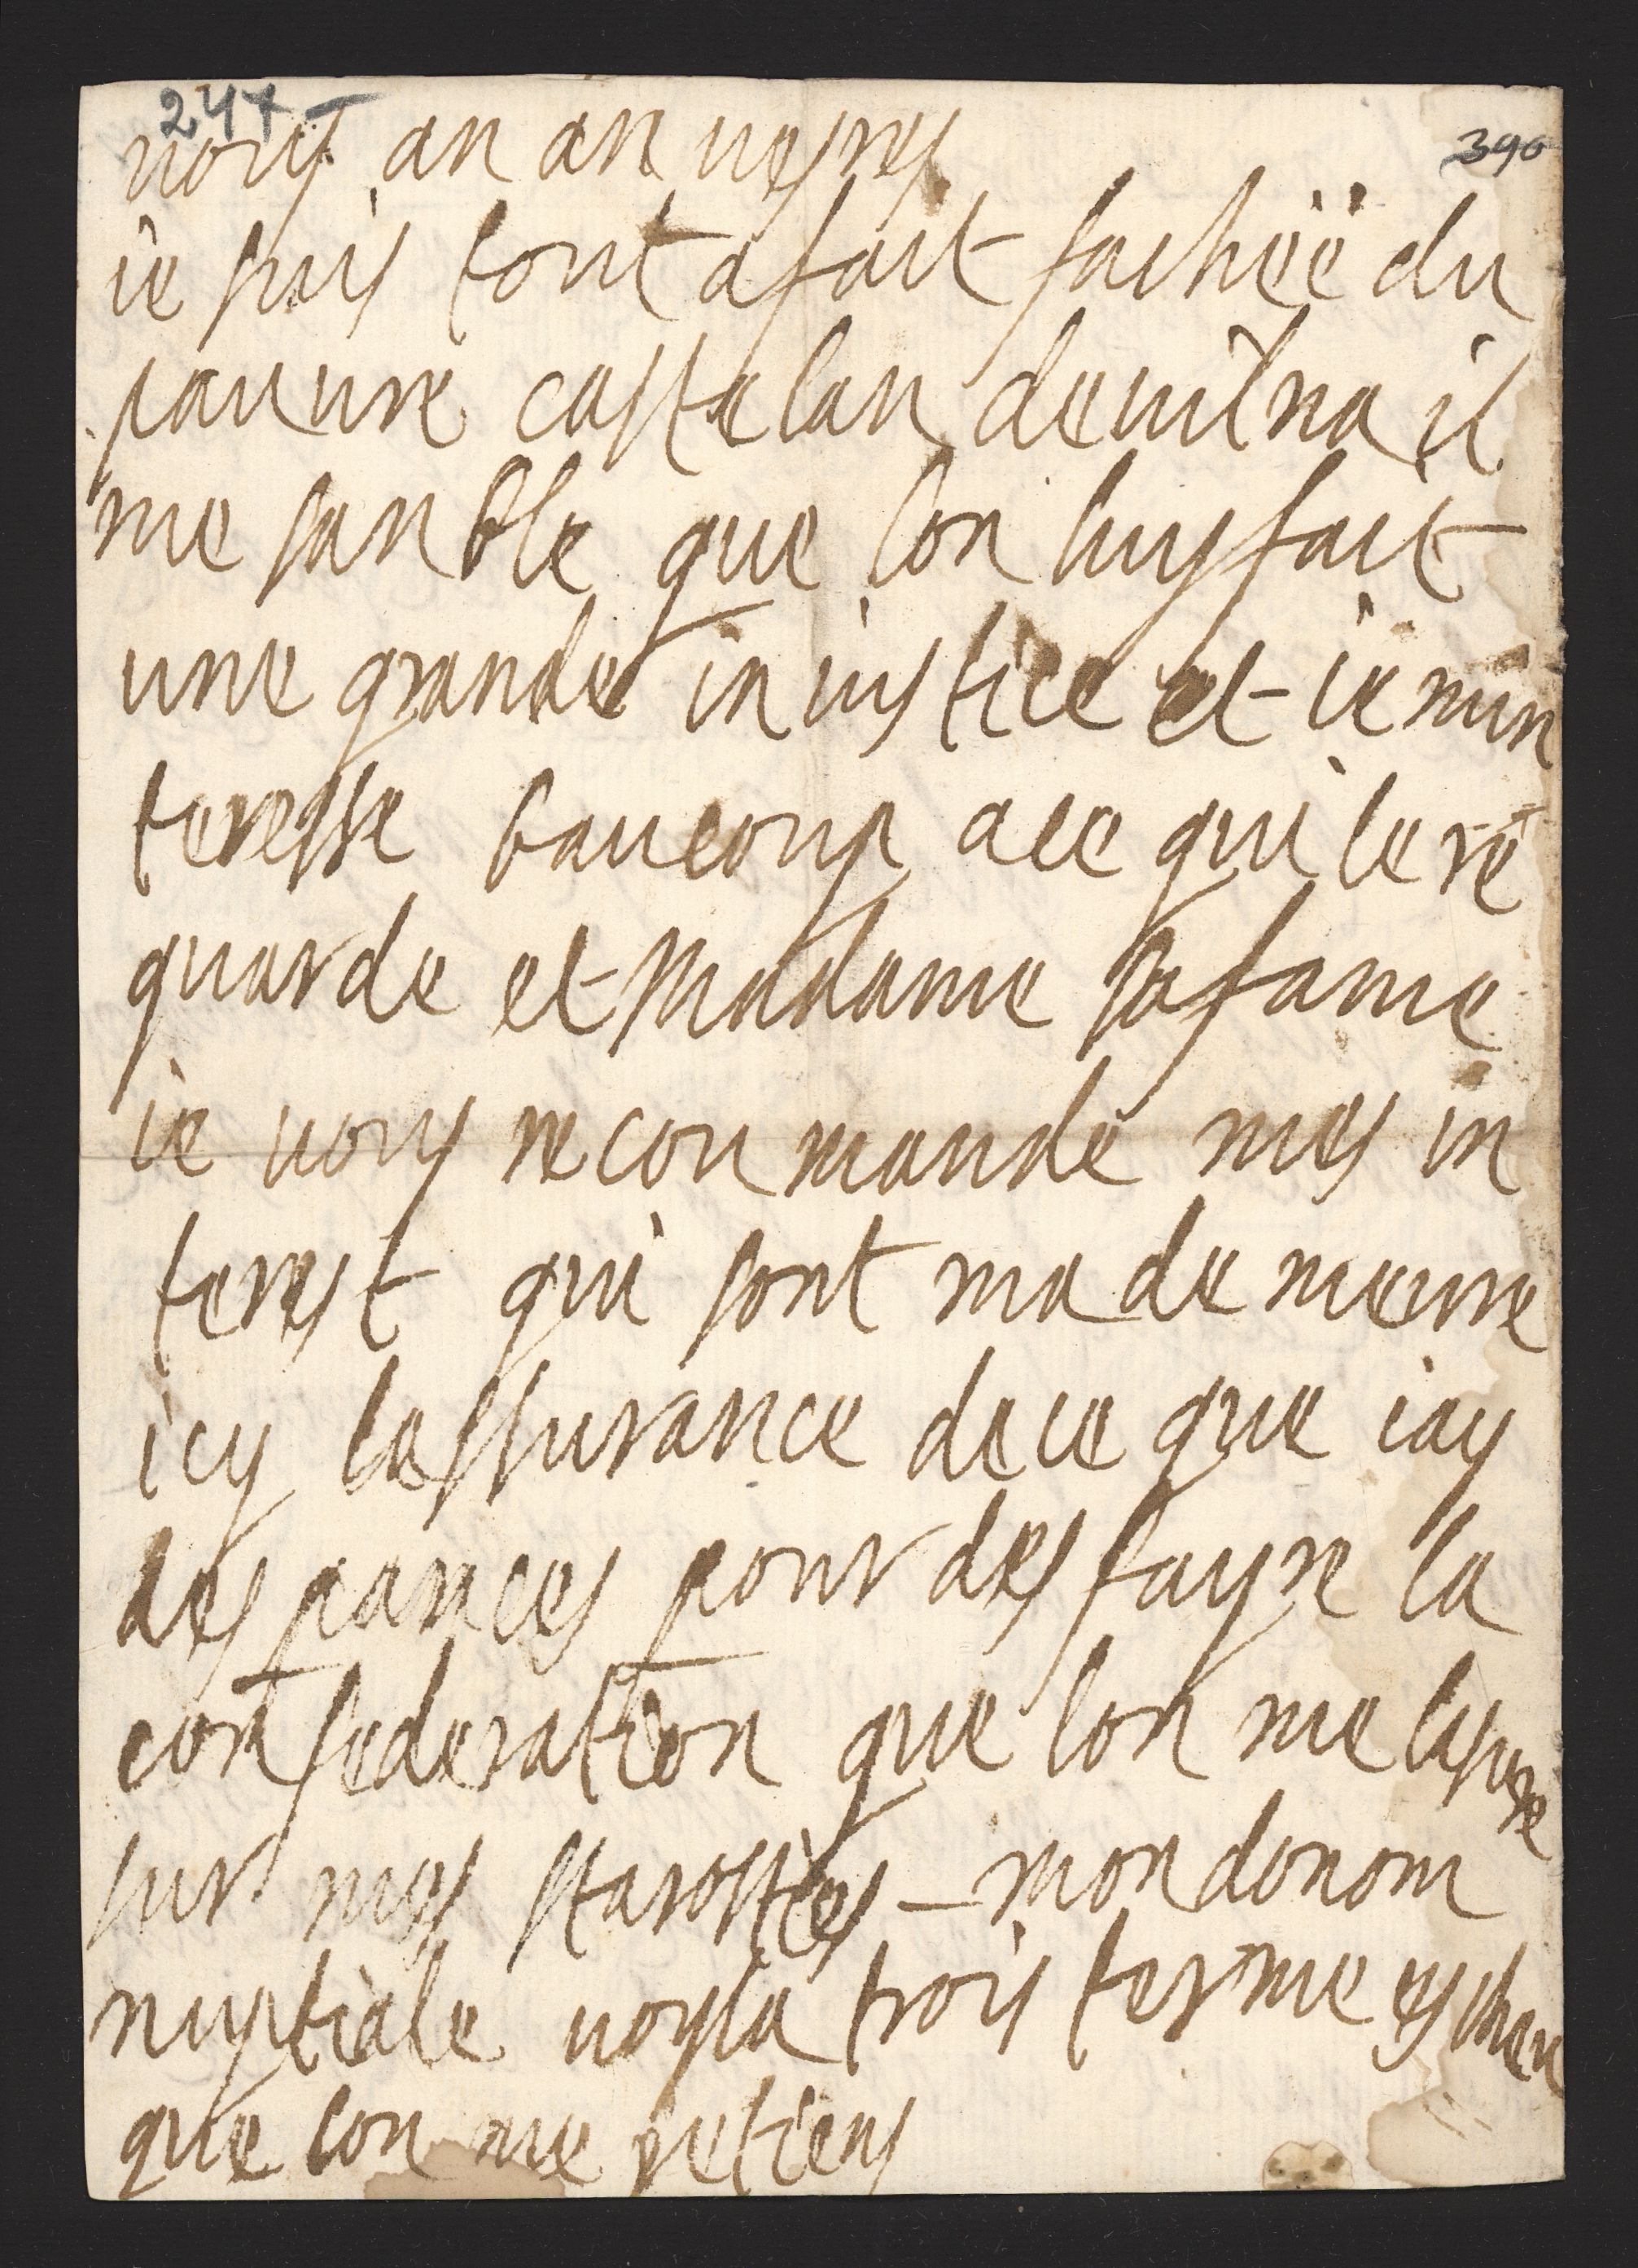 247
390
vous an an veres
ie suis tout afait fachéé du
pauuvre castelan deuilna il
me sanble que lon luy fait
une grande iniustice et ie min
teresse baucoup ace qui le re
guarde et Madame sa fame
ie vous reconmande mes in
terest qui sont ma demeure
icy lassurance dece que iay
des pances pour des fayre la
confederation que lon me lasure
sur mes starosties – mon donom
nuptiale voyla trois terme
que lon me retiens